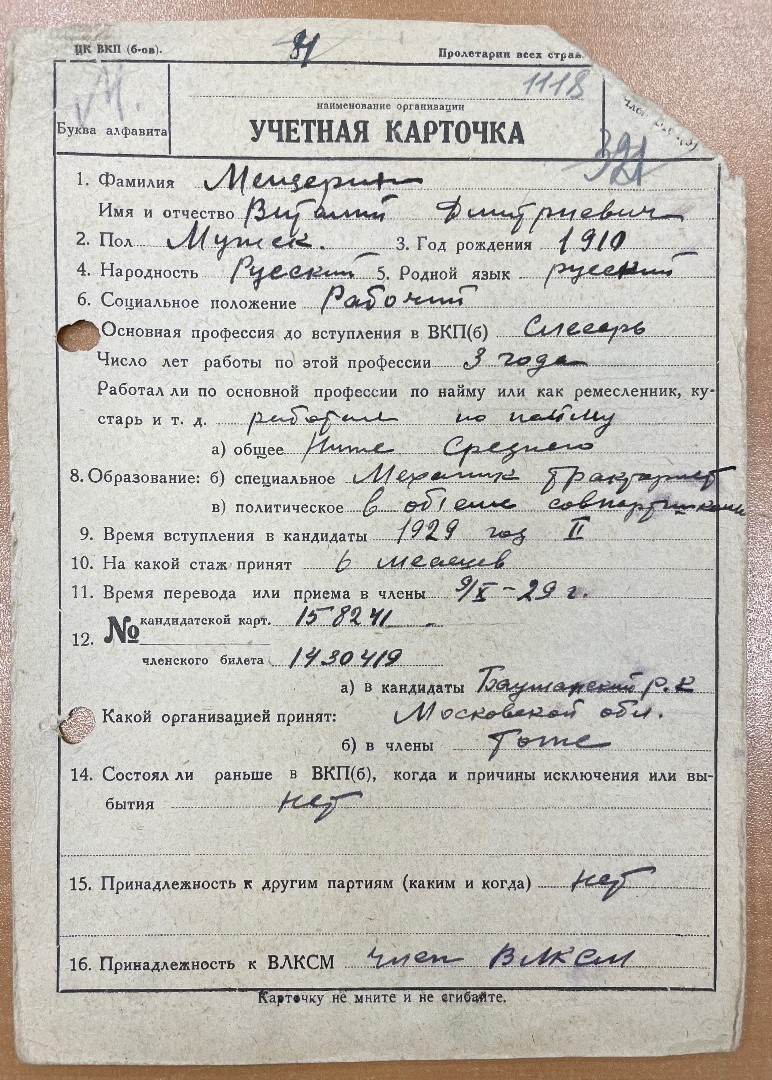 ЦК ВКП (б-ов). Пролетарии всех стран
1118
М.
наименование организации
Буква алфавита
УЧЕТНАЯ КАРТОЧКА
321
1. Фамилия Мещерин
Имя и отчество Виталий Дмитриевич
2. Пол Мужск. 3. Год рождения 1910
4. Народность Русский 5. Родной язык русский
6. Социальное положение Рабочий
Основная профессия до вступления в ВКП(б) Слесарь
Число лет работы по этой профессии 3 года
Работал ли по основной профессии по найму или как ремесленник, ку-
старь и т. д. работал по найму
а) общее Ниже Среднего
8. Образование: б) специальное Механик тракторист
в) политическое в об'еме совпартшколы
9. Время вступления в кандидаты 1929 год II
10. На какой стаж принят 6 месяцев
11. Время перевода или приема в члены 9/X-29 г.
12. № кандидатской карт. 158241
членского билета 1430419
а) в кандидаты Бауманский р.к
Какой организацией принят: Московской обл.
б) в члены тоже
14. Состоял ли раньше в ВКП(б), когда и причины исключения или вы-
бытия нет
15. Принадлежность к другим партиям (каким и когда) нет
16. Принадлежность к ВЛКСМ член ВЛКСМ
Карточку не мните и не сгибайте.